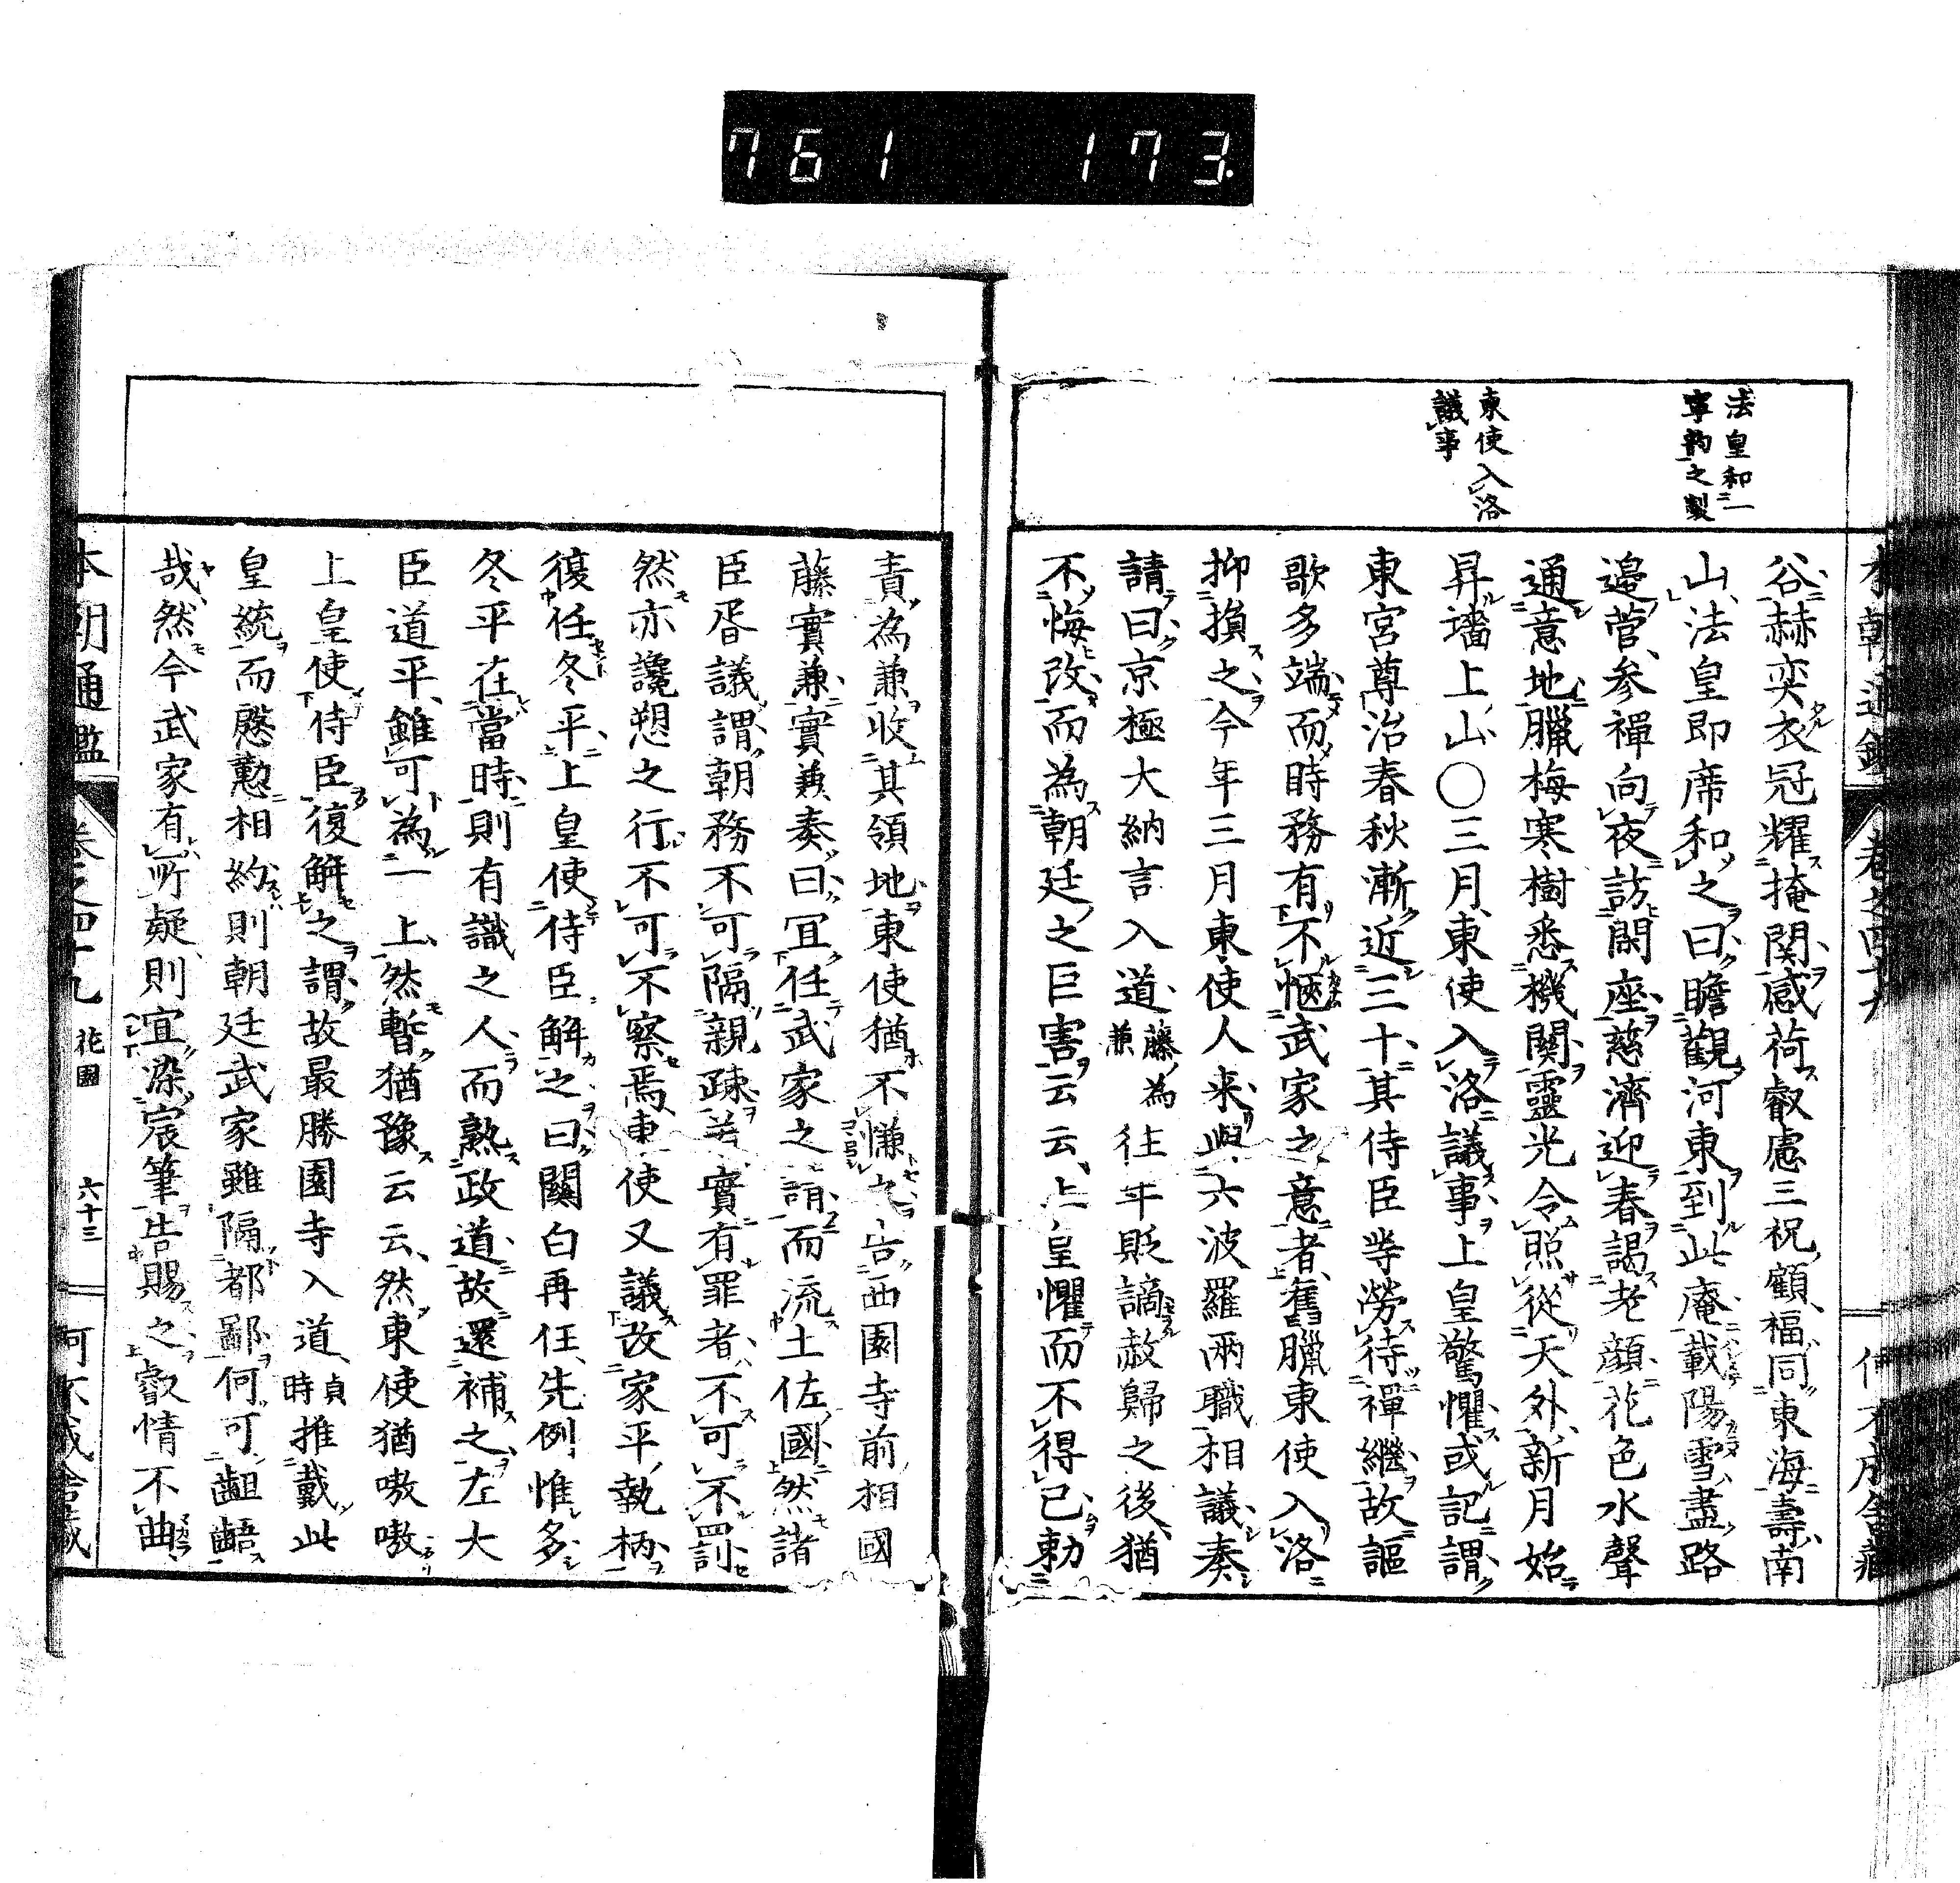 761 173
本朝通鑑 卷之四十九
法皇和二
寧韵一之製
東使入洛
議事
谷赫奕衣冠耀掩関感荷叡慮三祝顧福同東海壽南
山法皇即席和之曰瞻觀河東到此庵載陽雪盡路
邉菅参禪向夜訪閑座慈濟迎春謁老顔花色水聲
通意地臘梅寒樹悉機關靈光令照從天外新月始
昇墻上山○三月東使入洛議事上皇驚懼或記謂
東宮尊治春秋漸近三十其侍臣等勞待禪繼故謳
歌多端而時務有不愜武家之意者舊臘東使入洛
抑損之今年三月東使人來與六波羅兩職相議奏
請曰京極大納言入道藤為兼往年貶謫赦歸之後猶
不悔改而為朝廷之巨害云云上皇懼而不得已勅
責為兼收其領地東使猶不慊告西園寺前相國
藤實兼實兼奏曰宜任武家之請而流土佐國然諸
臣胥議謂朝務不可隔親疎若實有罪者不可不罰
然亦讒愬之行不可不察焉東使又議改家平執柄
復任冬平上皇使侍臣解之曰關白再任先例惟多
冬平在當時則有識之人而熟政道故還補之左大
臣道平雖可為一上然暫猶豫云云然東使猶嗷嗷
上皇使侍臣復解之謂故最勝園寺入道貞時推戴此
皇統而慇懃相約則朝廷武家雖隔都鄙何可齟齬
哉然今武家有所疑則宜染宸筆告賜之叡情不曲
本朝通鑑 卷之四十九 花園 六十三